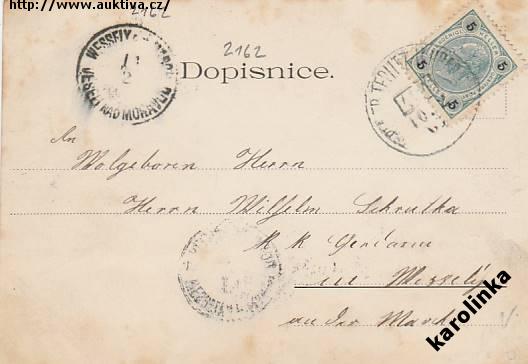 http://www.auktiva.cz/
2162
2162
WESSELY
VESELÍ NAD MORAVOU
Dopisnice.
5 5
5 5
An
Wolgeboren Herrn
Herrn Wilhelm Schrutka
K. K.
in Wessely
an der March
karolinka